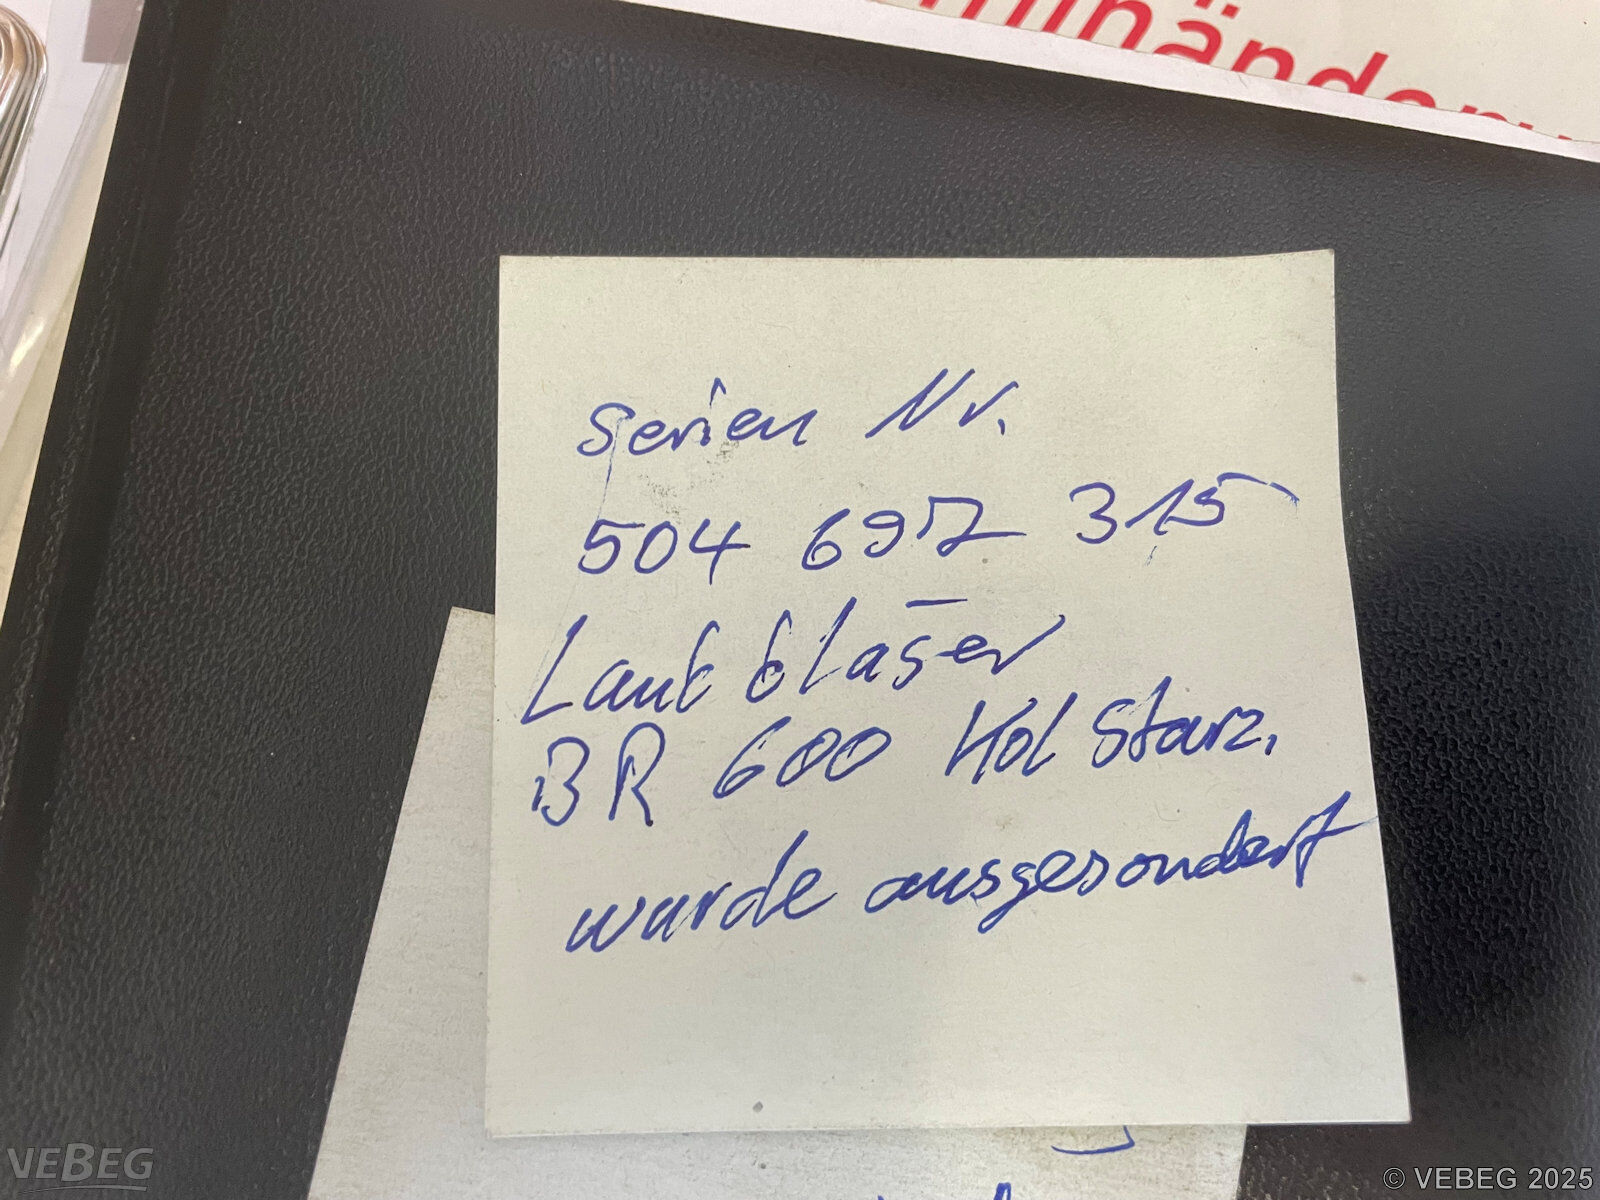 Serien Nr.
504 697 315
Laub bläser
BR 600 Kol Starz.
wurde ausgesondert
VEBEG
© VEBEG 2025